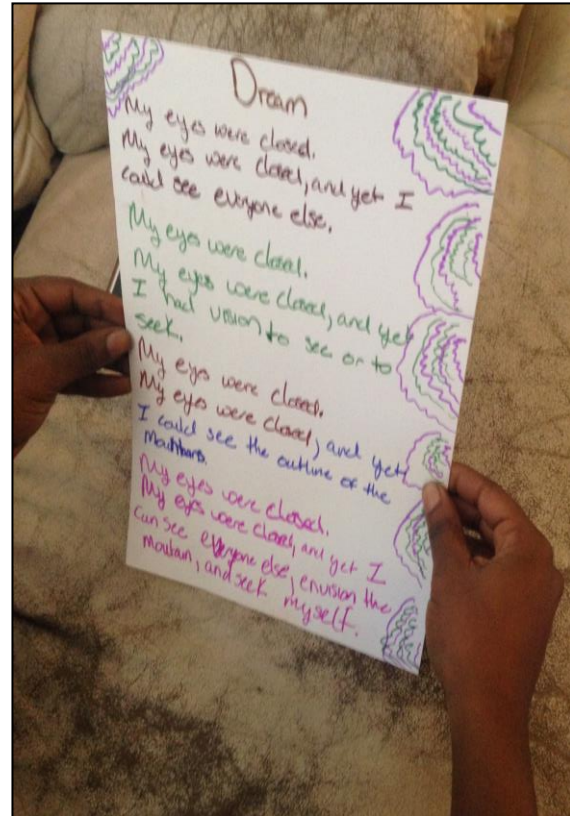 Dream
My eyes were closed.
My eyes were closed, and yet I
could see everyone else.
My eyes were closed.
My eyes were closed, and yet
I had vision to see or to
seek.
My eyes were closed.
My eyes were closed, and yet
I could see the outline of the
Mountians.
My eyes were closed.
My eyes were closed, and yet I
can see everyone else, envision the
moutain, and seek myself.